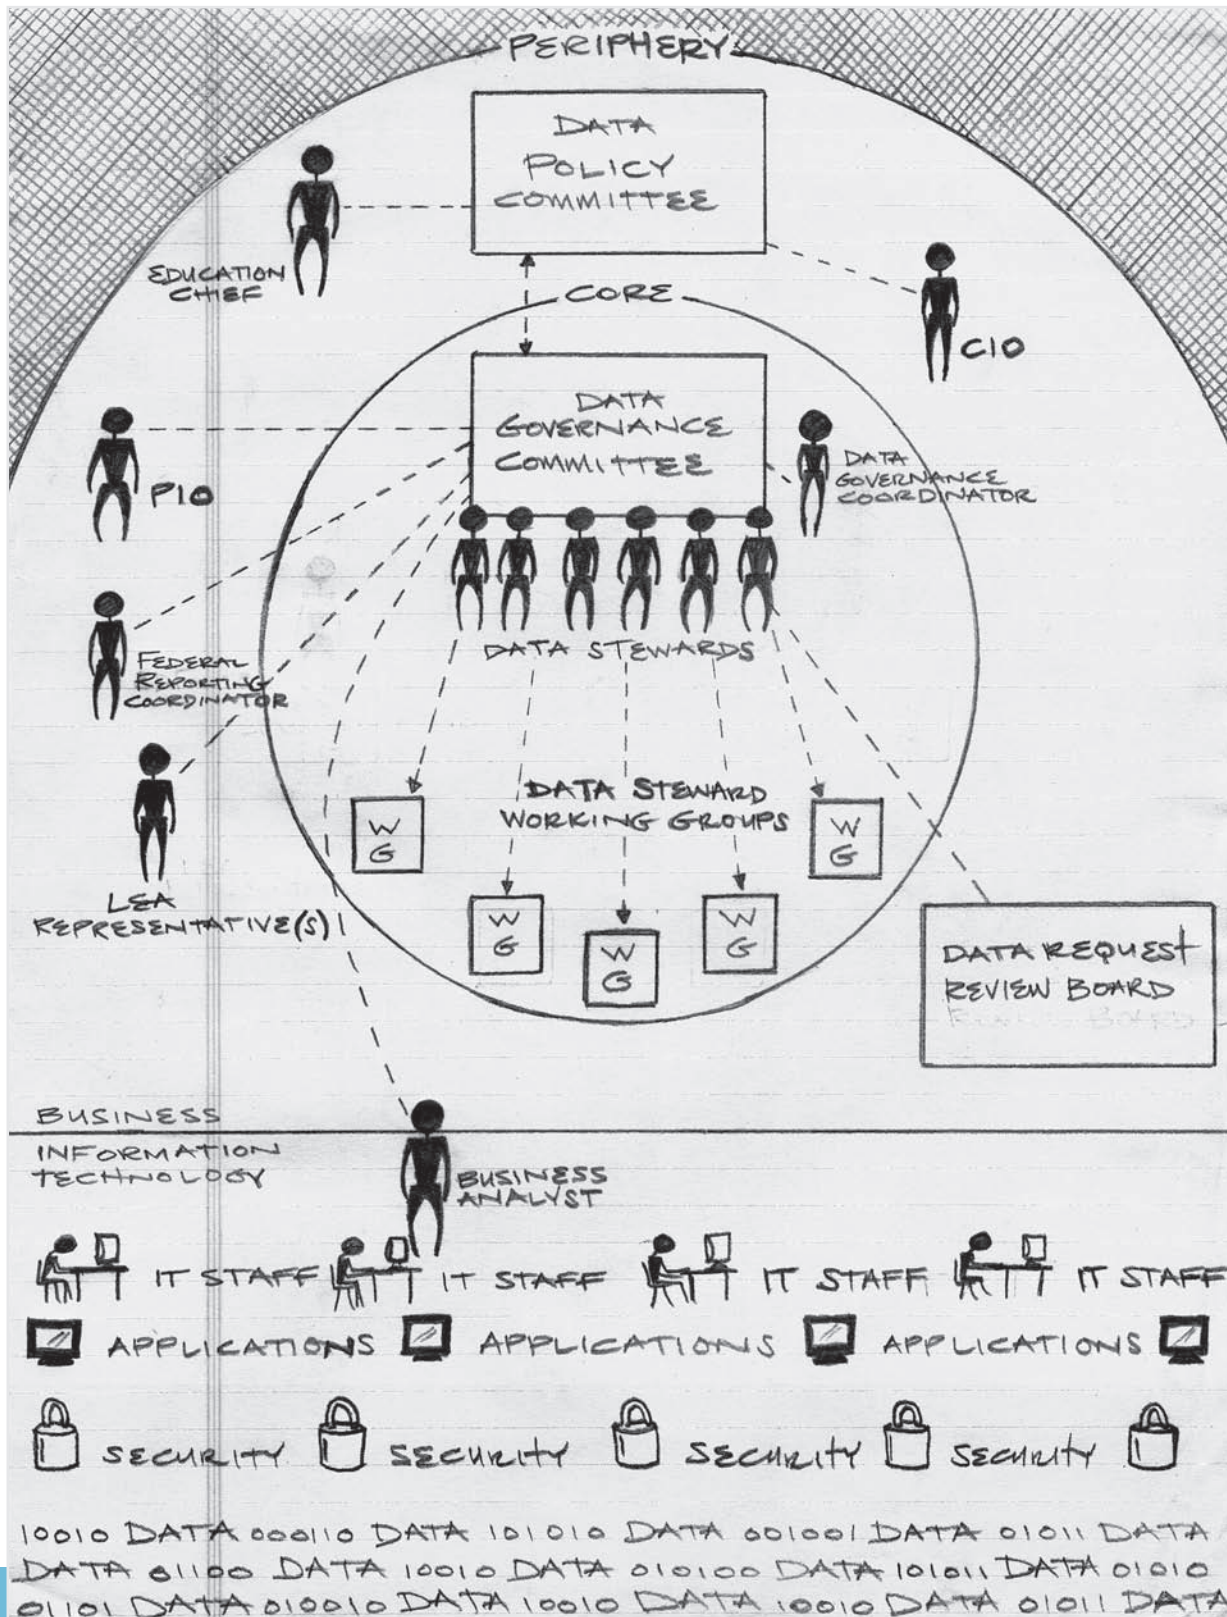 PERIPHERY
DATA
POLICY
COMMITTEE
EDUCATION
CHIEF
CORE
CIO
DATA
GOVERNANCE
COMMITTEE
PIO
DATA
GOVERNANCE
COORDINATOR
DATA STEWARDS
FEDERAL
REPORTING
COORDINATOR
DATA STEWARD
WORKING GROUPS
W
G
W
G
W
G
W
G
W
G
LEA
REPRESENTATIVE(S)
DATA REQUEST
REVIEW BOARD
BUSINESS
INFORMATION
TECHNOLOGY
BUSINESS
ANALYST
IT STAFF IT STAFF IT STAFF IT STAFF
APPLICATIONS APPLICATIONS APPLICATIONS
SECURITY SECURITY SECURITY SECURITY
10010 DATA 000110 DATA 101010 DATA 001001 DATA 01011 DATA
DATA 01100 DATA 10010 DATA 010100 DATA 101011 DATA 01010
01101 DATA 010010 DATA 10010 DATA 10010 DATA 01011 DATA